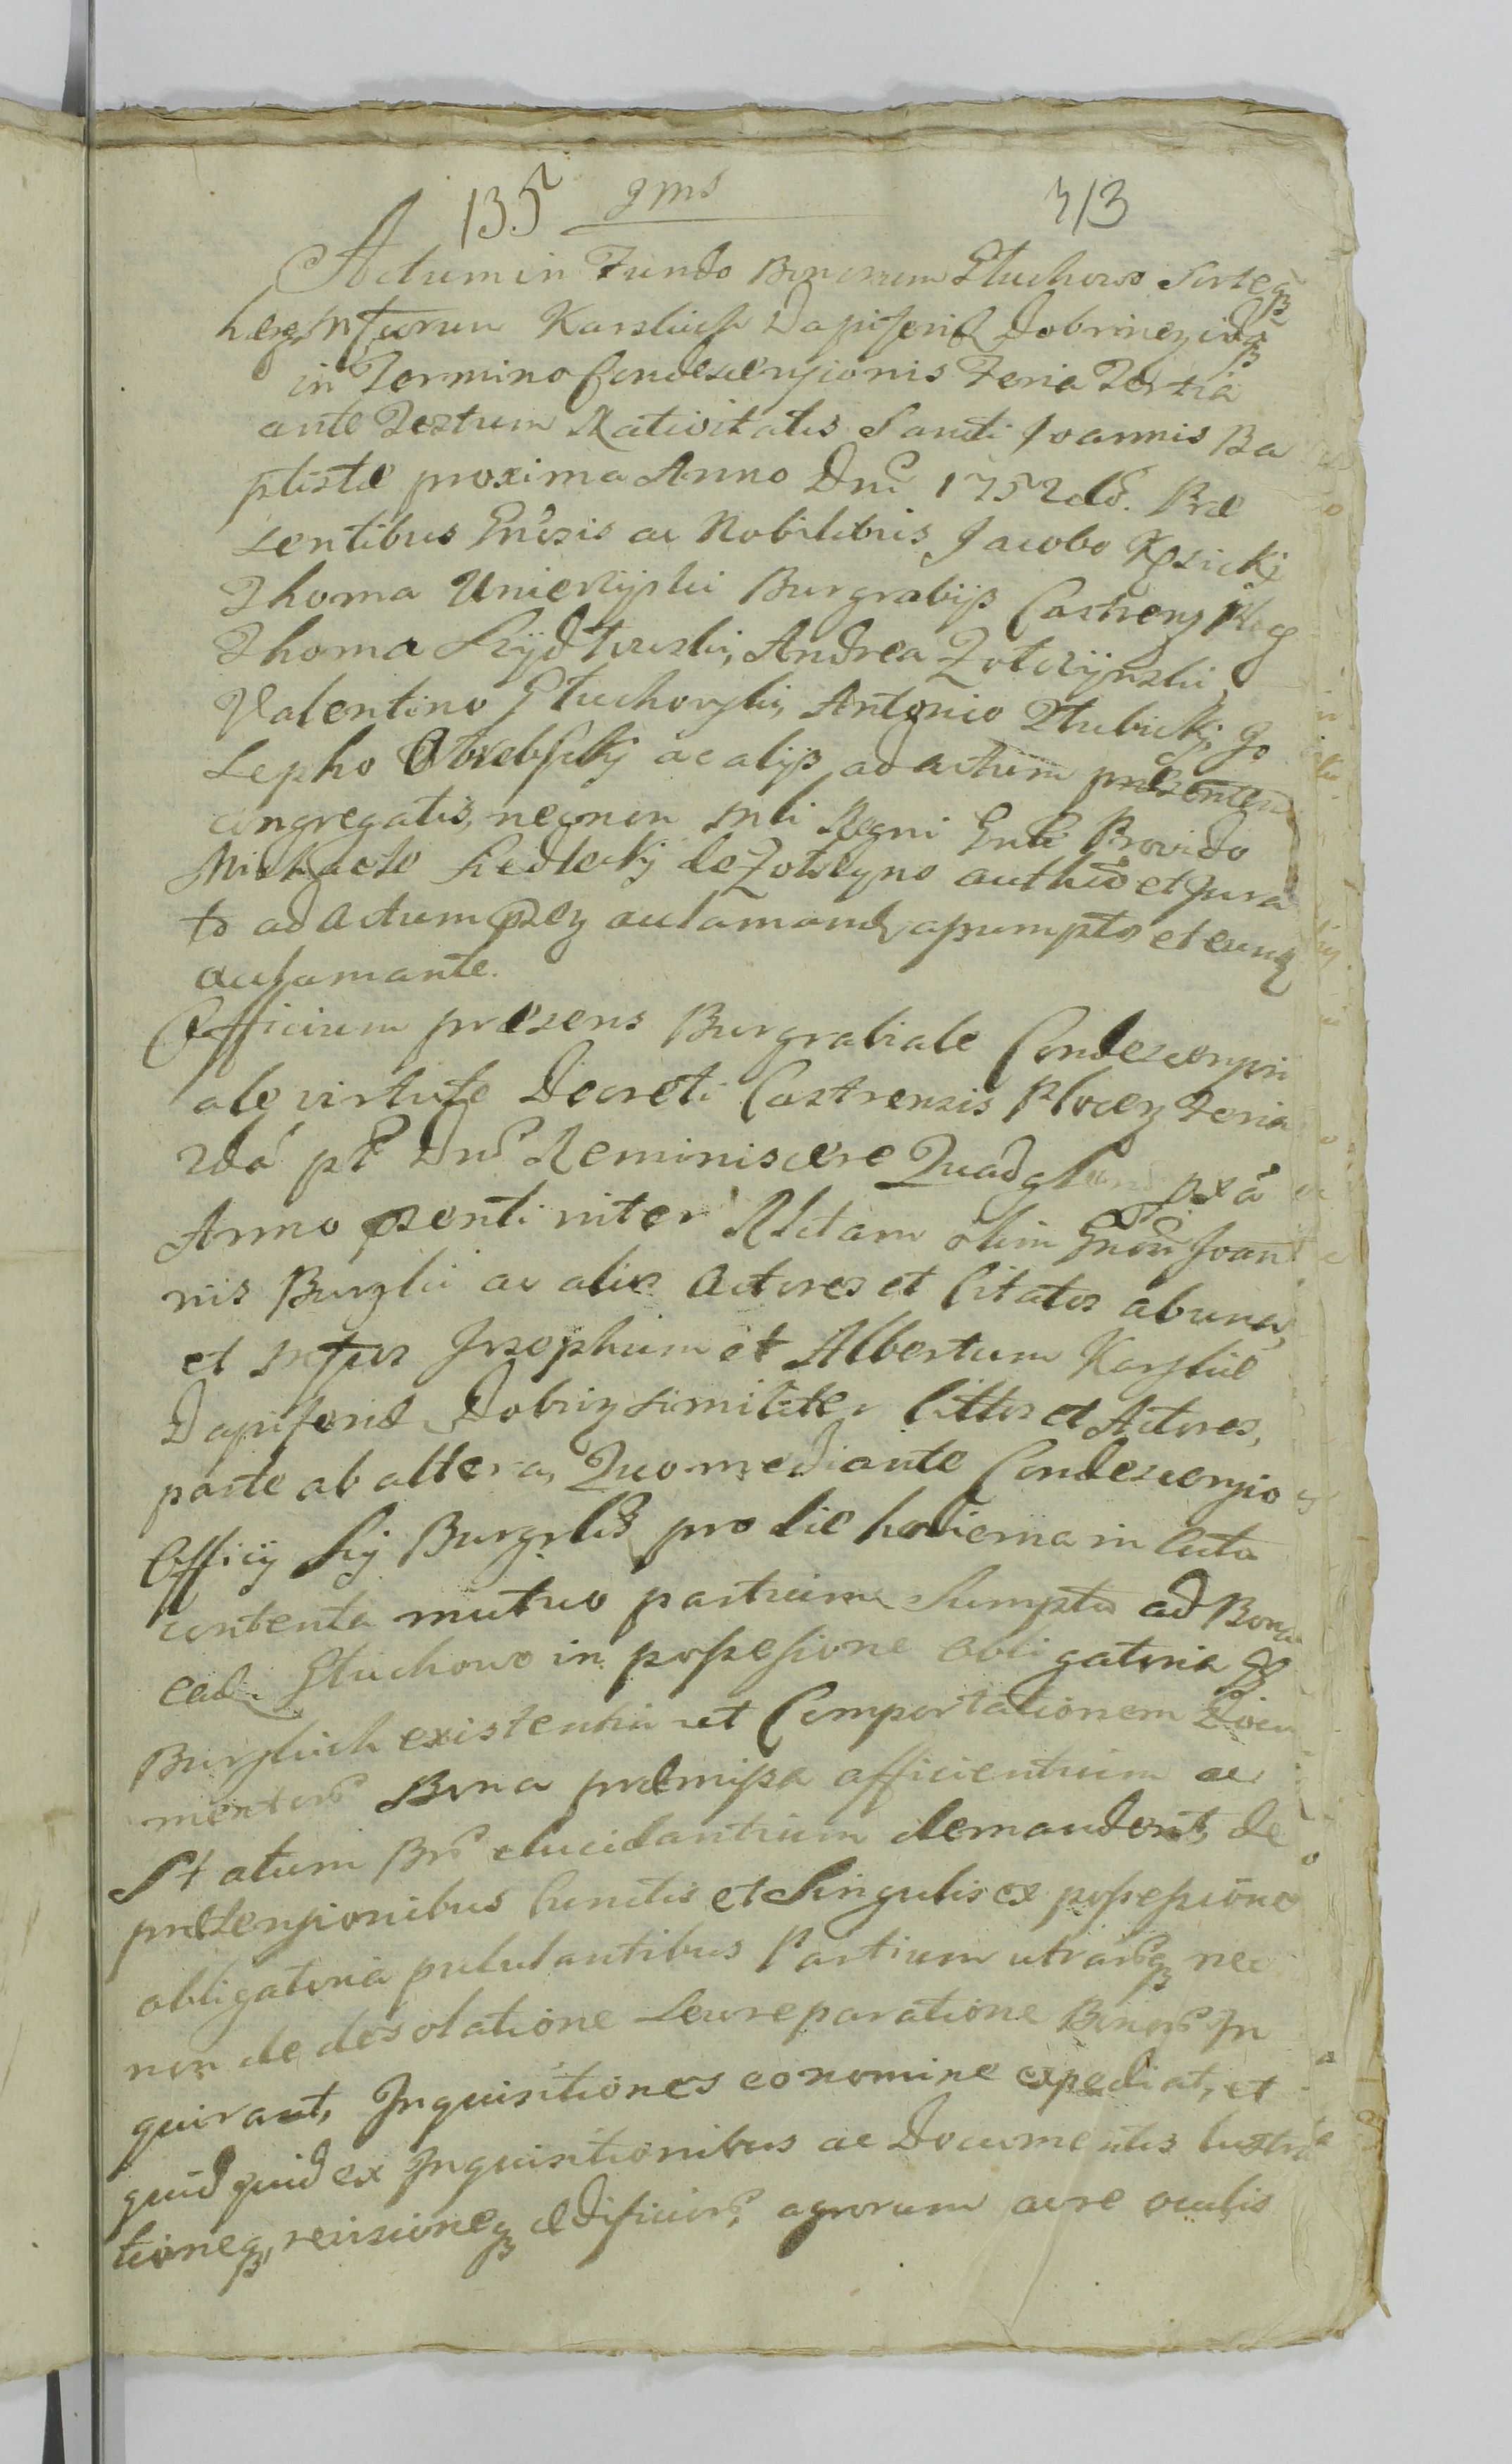 135 gms 713
Actum in Fundo Bonorum Głuchowo Sorteqz
hege Mfcorum Karskich Dapiferid Dobrinez ibdq
in Termino Condescensionis Feria Tertia
ante Festum Nativitatis Sancti Joannis Ba
ptistæ proxima Anno Dni 1752do. Præ
sentibus Gnosis ac Nobilibus Jacobo Kęsickj
Thoma Unierzyski Burgrabijs Castrenz Ploc
Thoma Szydłowski, Andrea Zołczynski
Valentino Głuchowski, Antonio Dłubickj, Jo
sepho Obrebskj ac alijs ad actum præsentem
congregatis, necnon Mli Regni Gnli Provido
Michaele Siedleckj de Zołczyno authco et Jura
to ad Actum psez aclamand assumpto et eund
aclamante.
Officium præsens Burgrabiale Condescensri
ale virtute Decreti Castrensis Plocez Feria
2da pt Dni Reminiscere Quadgl pxa
Anno psenti inter Relctam olim Gnosi Joan
nis Burski ac alios Actores et Citatos ab una,
et Mfcos Josephum et Albertum Karskie
Dapiferid Dobriz similiter Cittos et Actores,
parte ab altera, Quo mediante Condescensio
Officij Sŋ Burgrlis pro die hodierna in Ccto
contenta mutuo partium Sumptu ad Bona
ead Głuchowo in possessione obligatoria GG
Burskich existentia et Comportationem Docu
mentors Bona præmissa afficientium ac
Statum Brs elucidantium demandent, de
prætensionibus Cunctis et Singulis ex possessione
obligatoria pululantibus Partium utrarsqz nec
non de desolatione seu reparatione Bonors In
quirant, Inquisitiones eo nomine expediat, et
quidquid ex Inquisitionibus ac Documentis lustra
tioneqz, revisioneqz ædificiors, agrorum acre oculis